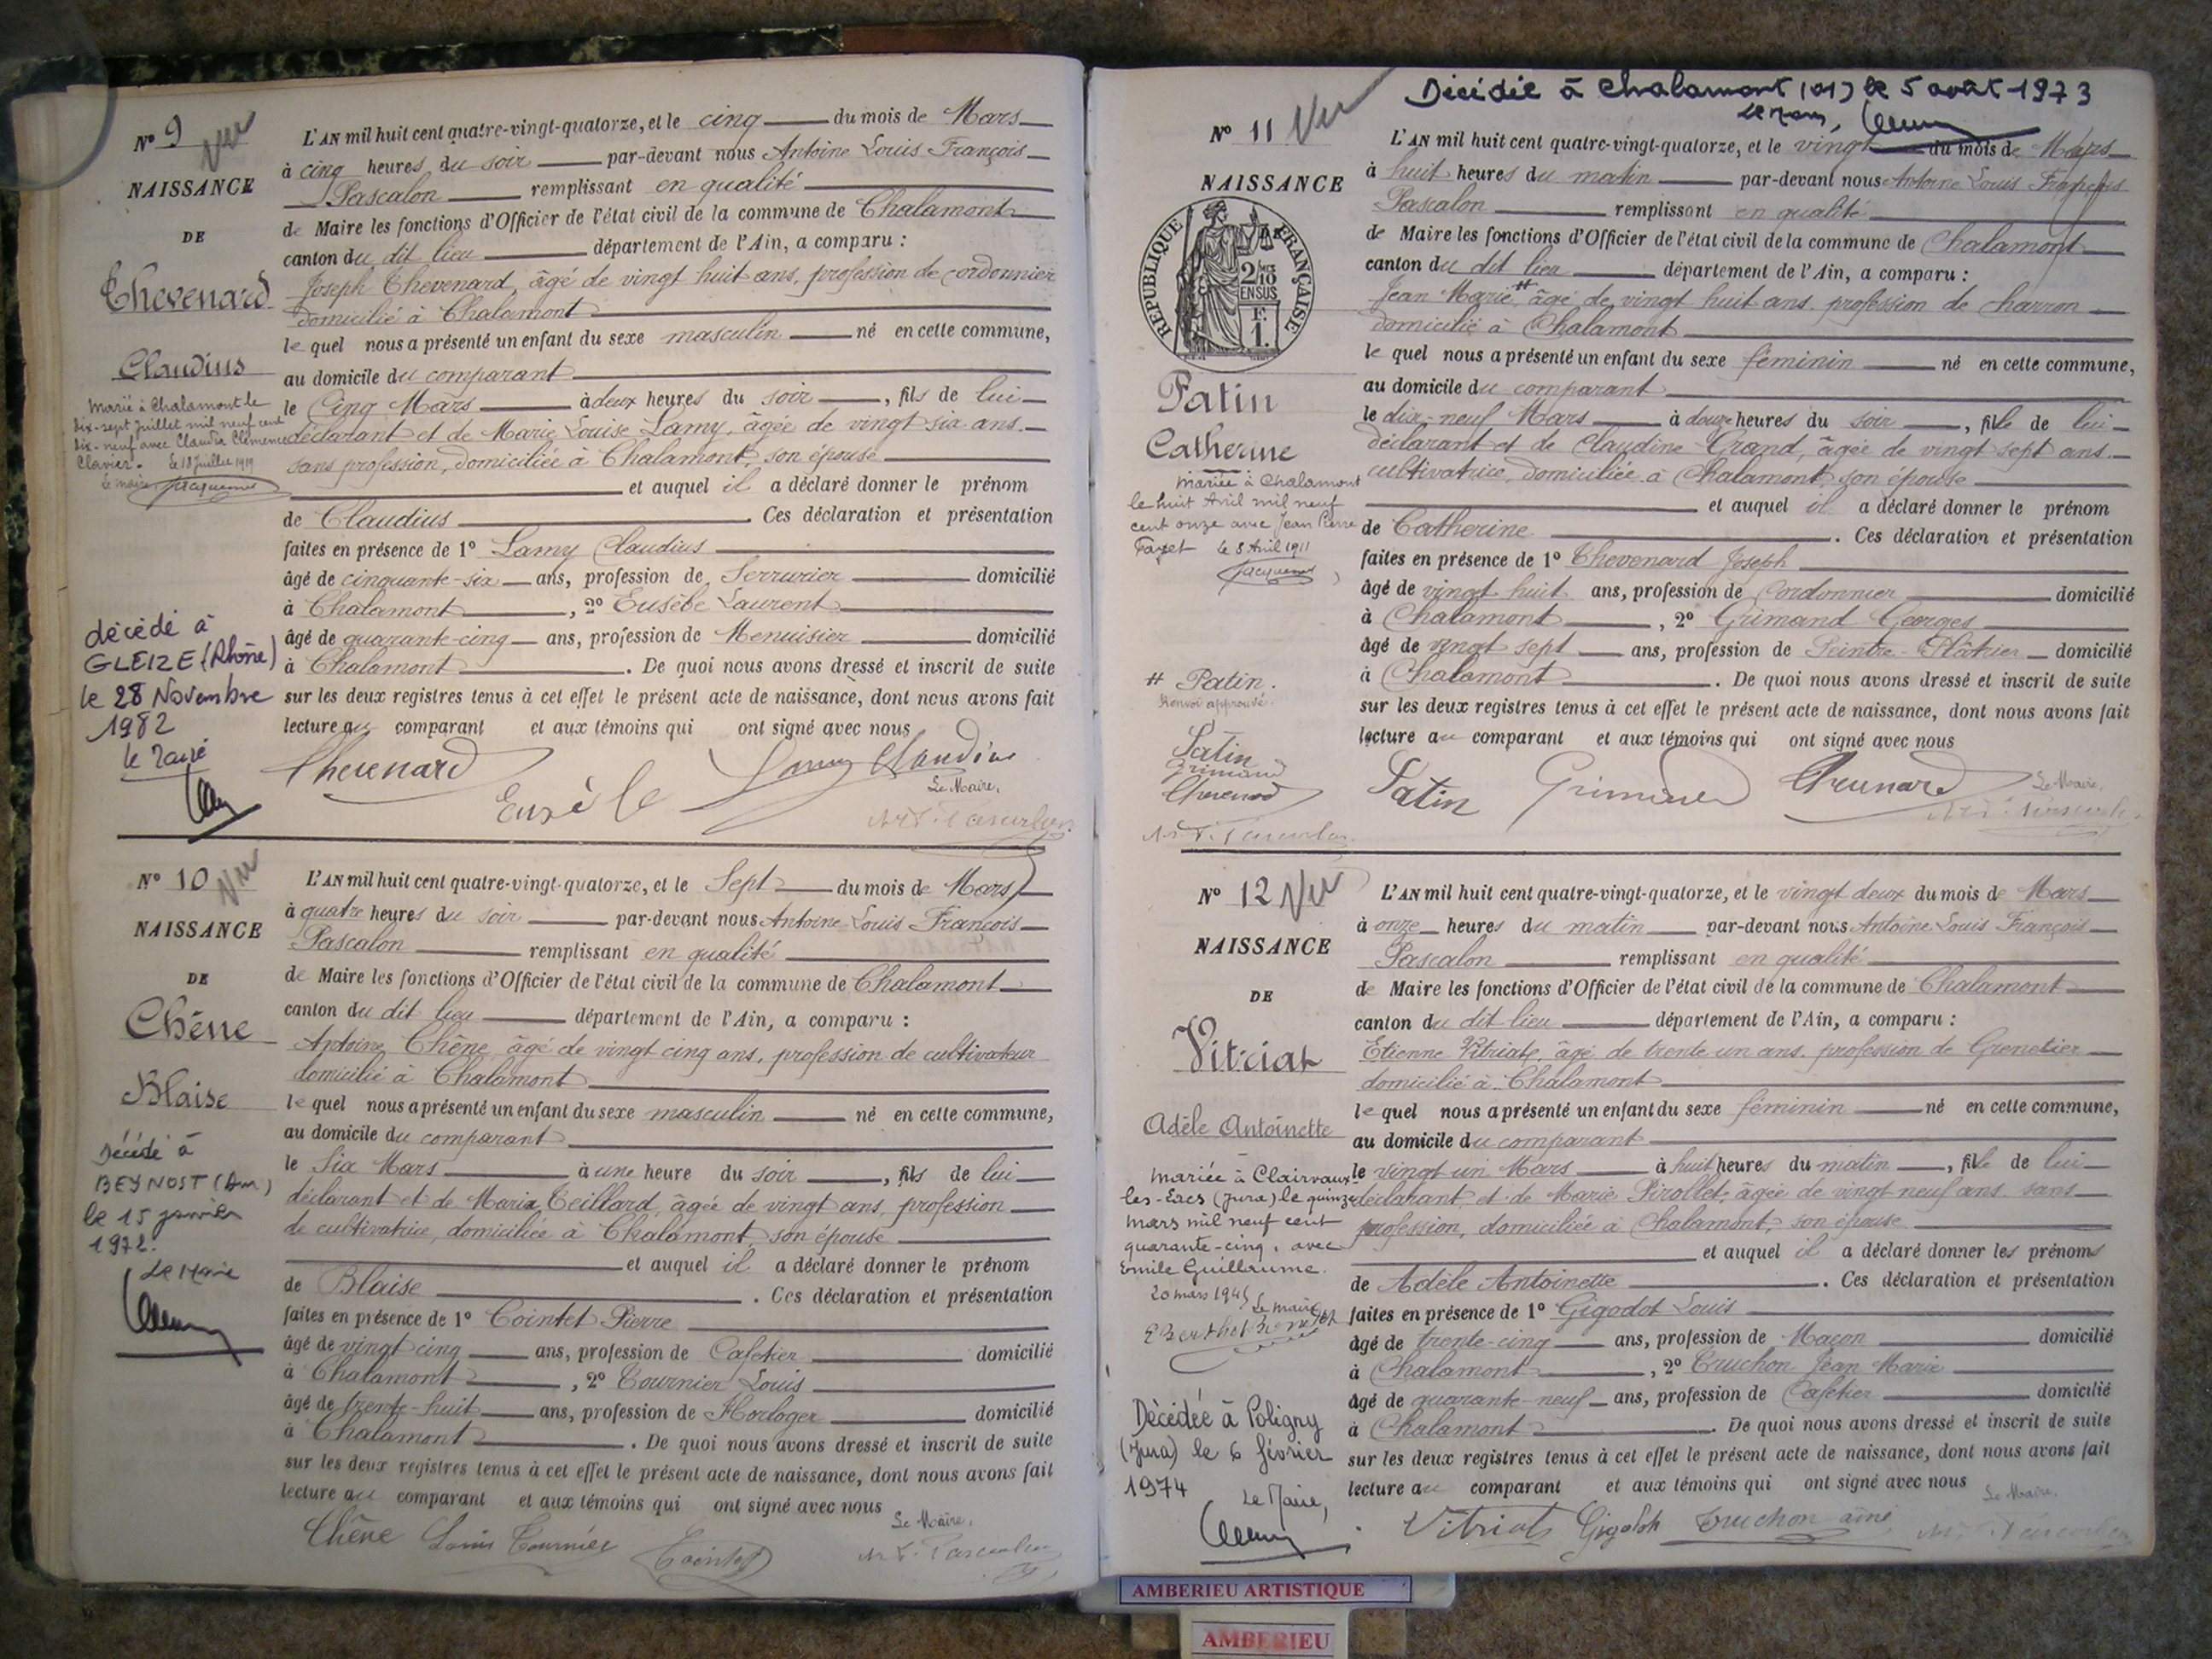 N° 9
Vu
NAISSANCE
DE
Thevenard
Claudius
Marié à Chalamont le
dix-sept juillet mil neuf cent
dix-neuf avec Claudia Clémence
Clavier. Le 18 juillet 1919
Le maire,
décédé à
GLEIZE (Rhône)
le 28 Novembre
1982
le Maire
L'AN mil huit cent quatre-vingt-quatorze, et le cinq du mois de Mars
à cinq heures du soir par-devant nous Antoine Louis François
Pascalon remplissant en qualité
de Maire les fonctions d'Officier de l'état civil de la commune de Chalamont
canton du dit lieu département de l'Ain, a comparu :
Joseph Thevenard, âgé de vingt huit ans, profession de cordonnier
domicilié à Chalamont
lequel nous a présenté un enfant du sexe masculin né en cette commune,
au domicile du comparant
le Cinq Mars à deux heures du soir, fils de lui
déclarant et de Marie Louise Lamy, âgée de vingt six ans.
sans profession, domiciliée à Chalamont, son épouse
et auquel il a déclaré donner le prénom
de Claudius. Ces déclaration et présentation
faites en présence de 1° Lamy Claudius
âgé de cinquante-six ans, profession de Serrurier domicilié
à Chalamont, 2° Eusèbe Laurent
âgé de quarante-cinq ans, profession de Menuisier domicilié
à Chalamont. De quoi nous avons dressé et inscrit de suite
sur les deux registres tenus à cet effet le présent acte de naissance, dont nous avons fait
lecture au comparant et aux témoins qui ont signé avec nous
Thevenard Eusèbe Lamy Claudius
Le Maire,
N° 10
Vu
NAISSANCE
DE
Chêne
Blaise
Décédé à
BEYNOST (Ain)
le 15 janvier
1972.
Le Maire
L'AN mil huit cent quatre-vingt-quatorze, et le Sept du mois de Mars
à quatre heures du soir par-devant nous Antoine Louis François
Pascalon remplissant en qualité
de Maire les fonctions d'Officier de l'état civil de la commune de Chalamont
canton du dit lieu département de l'Ain, a comparu :
Antoine Chêne âgé de vingt cinq ans, profession de cultivateur
domicilié à Chalamont
lequel nous a présenté un enfant du sexe masculin né en cette commune,
au domicile du comparant
le Six Mars à une heure du soir, fils de lui
déclarant et de Maria Teillard, âgée de vingt ans, profession
de cultivatrice, domiciliée à Chalamont, son épouse
et auquel il a déclaré donner le prénom
de Blaise. Ces déclaration et présentation
faites en présence de 1° Cointet Pierre
âgé de vingt cinq ans, profession de Cafetier domicilié
à Chalamont, 2° Tournier Louis
âgé de trente-huit ans, profession de Horloger domicilié
à Chalamont. De quoi nous avons dressé et inscrit de suite
sur les deux registres tenus à cet effet le présent acte de naissance, dont nous avons fait
lecture au comparant et aux témoins qui ont signé avec nous
Le Maire,
Chêne Louis Tournier Cointet
Décédée à Chalamont (01) le 5 août 1973
Le Maire,
N° 11 Vu
NAISSANCE
DE
RÉPUBLIQUE FRANÇAISE
2/10 EN SUS
F. 1.
Patin
Catherine
Mariée à Chalamont
le huit Avril mil neuf
cent onze avec Jean Pierre
Fayet le 8 Avril 1911
# Patin.
Renvoi approuvé.
Patin
Grimand
Thevenard
L'AN mil huit cent quatre-vingt-quatorze, et le vingt du mois de Mars
à huit heures du matin par-devant nous Antoine Louis François
Pascalon remplissant en qualité
de Maire les fonctions d'Officier de l'état civil de la commune de Chalamont
canton du dit lieu département de l'Ain, a comparu :
Jean Marie # âgé de vingt huit ans. profession de charron
domicilié à Chalamont
lequel nous a présenté un enfant du sexe féminin né en cette commune,
au domicile du comparant
le dix-neuf Mars à douze heures du soir, fille de lui
déclarant et de Claudine Grand, âgée de vingt sept ans.
cultivatrice, domiciliée à Chalamont, son épouse
et auquel il a déclaré donner le prénom
de Catherine. Ces déclaration et présentation
faites en présence de 1° Thevenard Joseph
âgé de vingt huit ans, profession de Cordonnier domicilié
à Chalamont, 2° Grimand Georges
âgé de vingt sept ans, profession de Peintre-Plâtrier domicilié
à Chalamont. De quoi nous avons dressé et inscrit de suite
sur les deux registres tenus à cet effet le présent acte de naissance, dont nous avons fait
lecture au comparant et aux témoins qui ont signé avec nous
Patin Grimand Thevenard
Le Maire,
N° 12 Vu
NAISSANCE
DE
Vitriat
Adèle Antoinette
Mariée à Clairvaux
les-Lacs (Jura) le quinze
mars mil neuf cent
quarante-cinq, avec
Emile Guillaume.
20 mars 1945
Le maire
Décédée à Poligny
(Jura) le 6 février
1974
Le Maire,
L'AN mil huit cent quatre-vingt-quatorze, et le vingt deux du mois de Mars
à onze heures du matin par-devant nous Antoine Louis François
Pascalon remplissant en qualité
de Maire les fonctions d'Officier de l'état civil de la commune de Chalamont
canton du dit lieu département de l'Ain, a comparu :
Etienne Vitriat, âgé de trente un ans. profession de Grenetier
domicilié à Chalamont
lequel nous a présenté un enfant du sexe féminin né en cette commune,
au domicile du comparant
le vingt un Mars à huit heures du matin, fille de lui
déclarant et de Marie Pirollet, âgée de vingt neuf ans sans
profession, domiciliée à Chalamont, son épouse
et auquel il a déclaré donner les prénoms
de Adèle Antoinette. Ces déclaration et présentation
faites en présence de 1° Gigodot Louis
âgé de trente-cinq ans, profession de Maçon domicilié
à Chalamont, 2° Truchon Jean Marie
âgé de quarante-neuf ans, profession de Cafetier domicilié
à Chalamont. De quoi nous avons dressé et inscrit de suite
sur les deux registres tenus à cet effet le présent acte de naissance, dont nous avons fait
lecture au comparant et aux témoins qui ont signé avec nous
Le Maire.
Vitriat Gigodot Truchon aîné
AMBERIEU ARTISTIQUE
AMBERIEU